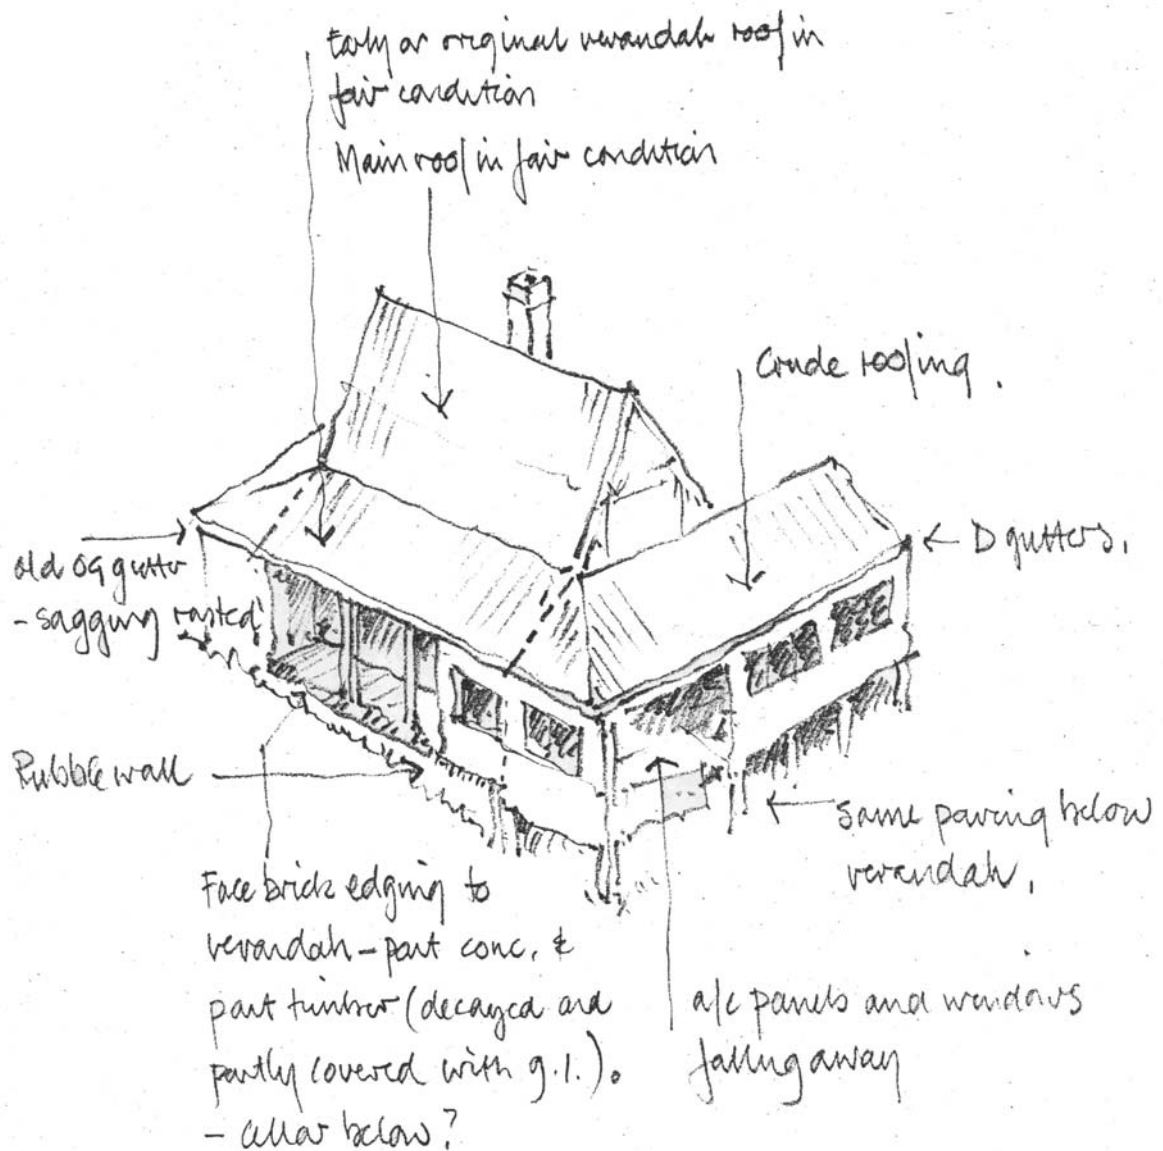 Early or original verandah roof in
fair condition
Main roof in fair condition
Crude roofing.
D gutters.
old OG gutter
- sagging rusted
Rubble wall
Some paving below
verandah.
Face brick edging to
verandah - part conc. &
part timber (decayed and
partly covered with g.i.).
- cellar below?
a/c panels and windows
falling away